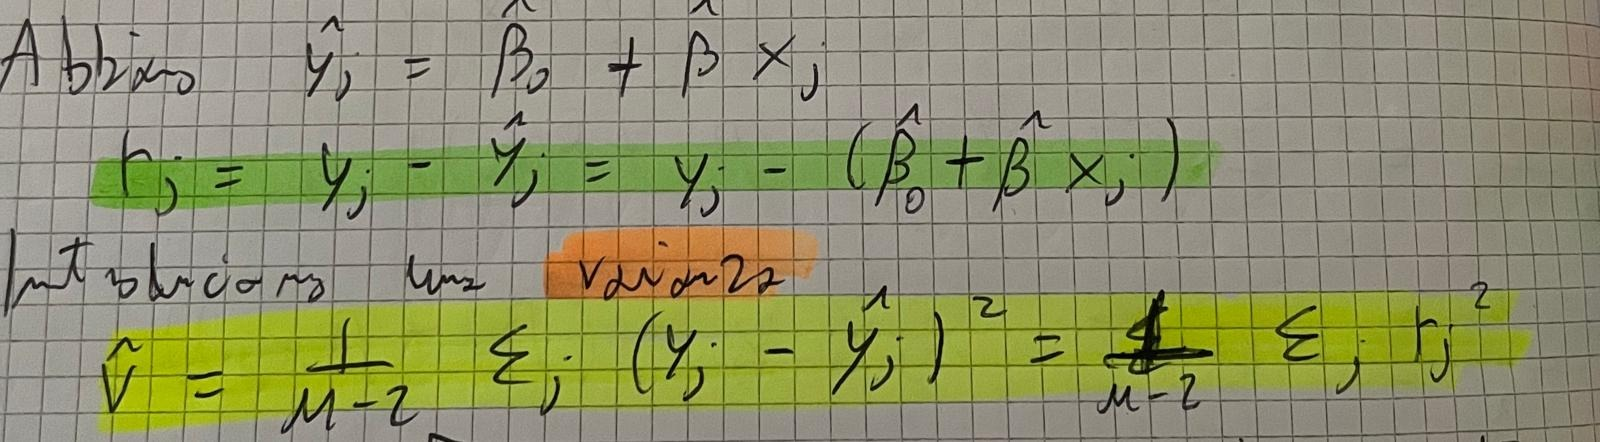 Abbiamo ŷj = β̂0 + β̂ xj
rj = yj - ŷj = yj - (β̂0 + β̂ xj)
Introduciamo una varianza
v̂ = 1/(n-2) Σj (yj - ŷj)² = 1/(n-2) Σj rj²